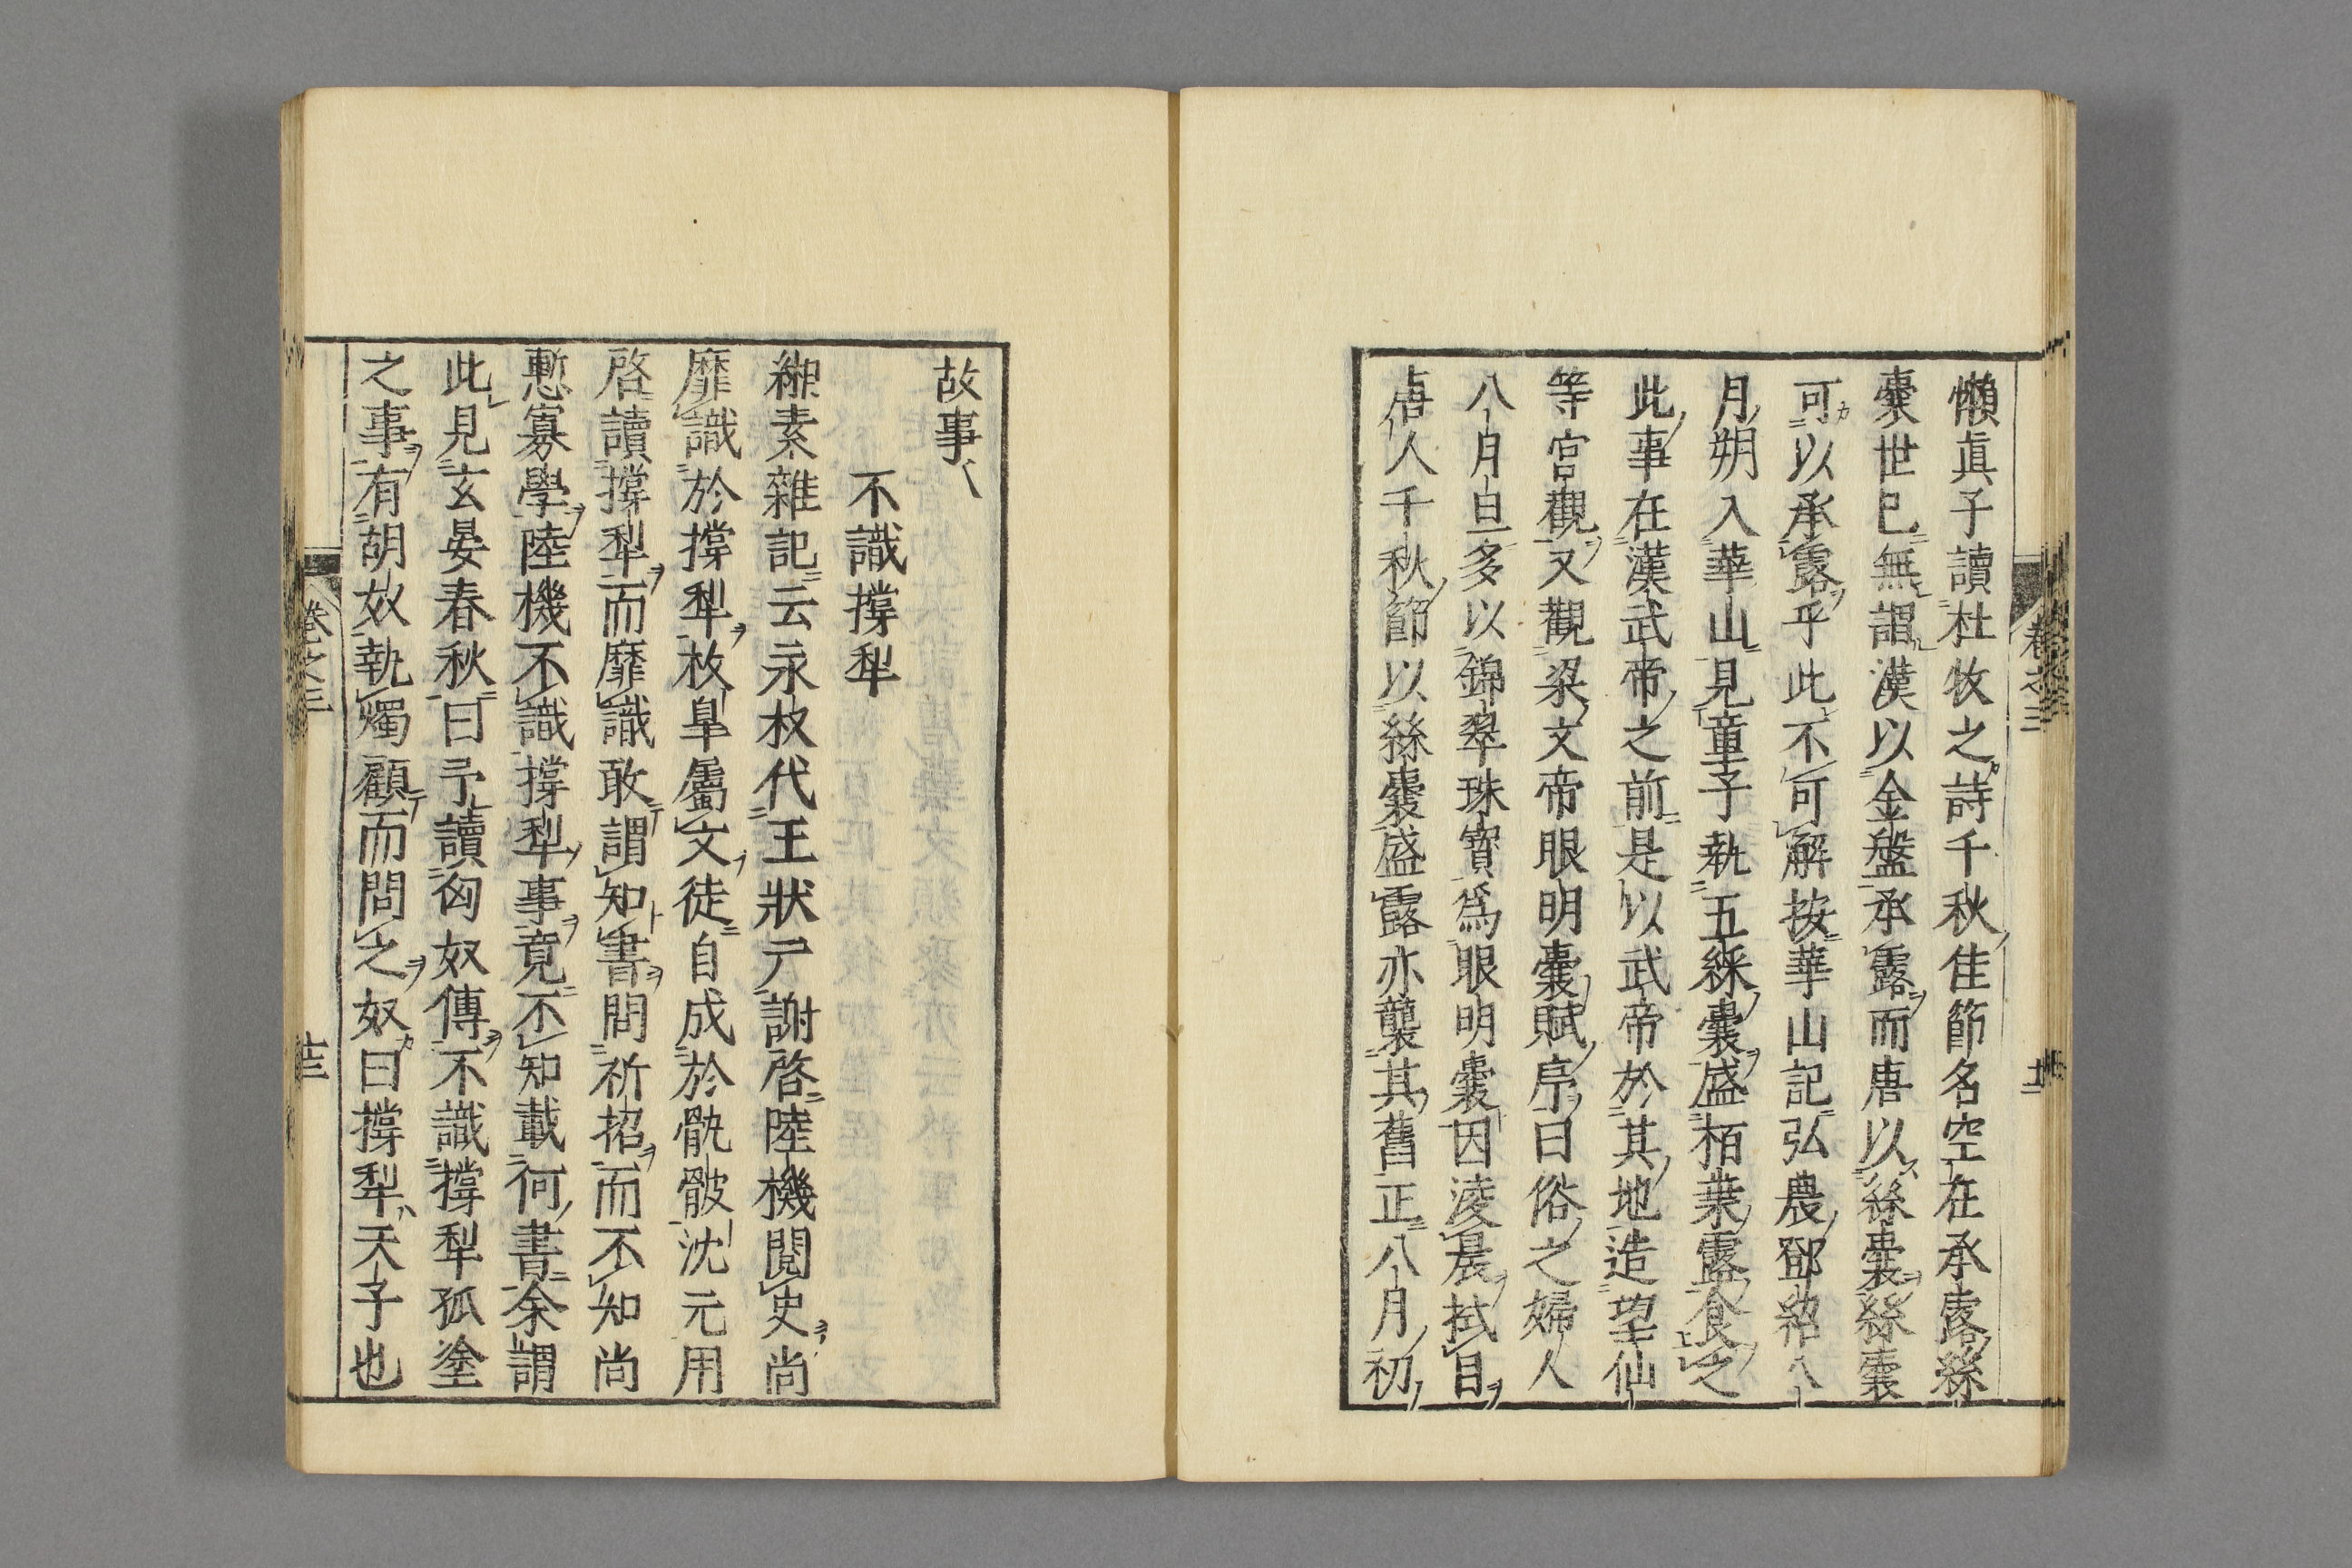 懶眞子讀杜牧之詩千秋佳節名空在承露絲
囊世已無謂漢以金盤承露而唐以絲囊絲囊
可以承露乎此不可解按華山記弘農鄧紹八
月朔入華山見童子執五綵囊盛栢葉露食之
此事在漢武帝之前是以武帝於其地造望仙
等宮觀又觀梁文帝眼明囊賦序曰俗之婦人
八月旦多以錦翠珠寶爲眼明囊因淩晨拭目
唐人千秋節以絲囊盛露亦襲其舊正八月初
故事
不識撐犁
緗素雜記云永叔代王狀元謝啓陸機閱史尚
靡識於撐犁枚皐屬文徒自成於骫骳沈元用
啓讀撐犁而靡識敢謂知書問祈招而不知尚
慙寡學陸機不識撐犁事竟不知載何書余謂
此見玄晏春秋曰予讀匈奴傳不識撐犁孤塗
之事有胡奴執燭顧而問之奴曰撐犁天子也
卷之三